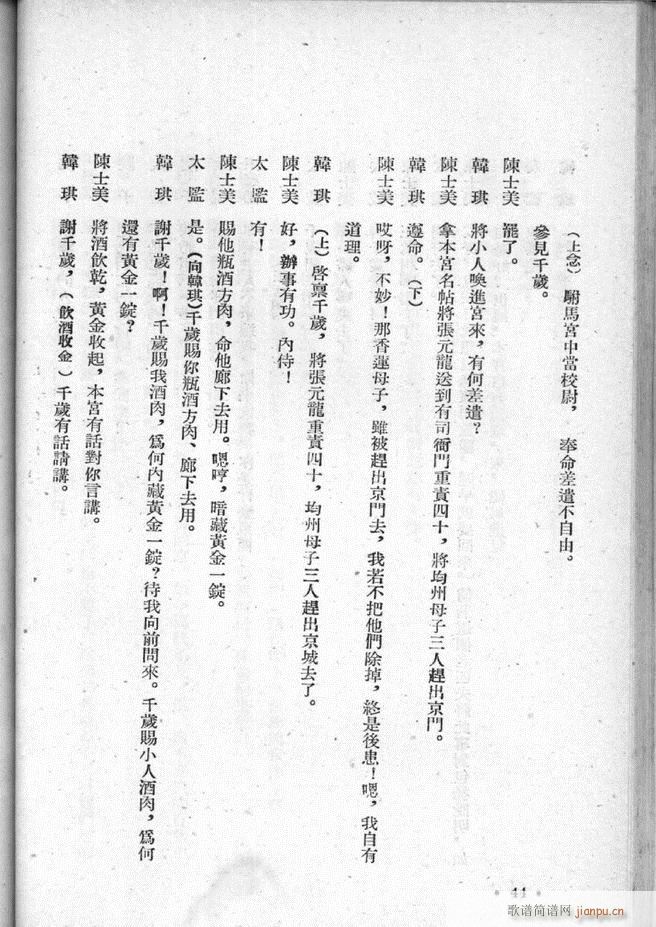 （上念）駙馬宮中當校尉， 奉命差遣不自由。
參見千歲。
陳士美 罷了。
韓 琪 將小人喚進宮來，有何差遣？
陳士美 拿本宮名帖將張元龍送到有司衙門重責四十，將均州母子三人趕出京門。
韓 琪 遵命。（下）
陳士美 哎呀，不妙！那香蓮母子，雖被趕出京門去，我若不把他們除掉，終是後患！嗯，我自有
道理。
韓 琪 （上）啓稟千歲，將張元龍重責四十，均州母子三人趕出京城去了。
陳士美 好，辦事有功。內侍！
太 監 有！
陳士美 賜他瓶酒方肉，命他廊下去用。嗯哼，暗藏黃金一錠。
太 監 是。（向韓琪）千歲賜你瓶酒方肉、廊下去用。
韓 琪 謝千歲！啊！千歲賜我酒肉，爲何內藏黃金一錠？待我向前問來。千歲賜小人酒肉，爲何
還有黃金一錠？
陳士美 將酒飲乾，黃金收起，本宮有話對你言講。
韓 琪 謝千歲，（飲酒收金）千歲有話請講。
· 41 ·
歌谱简谱网 jianpu.cn